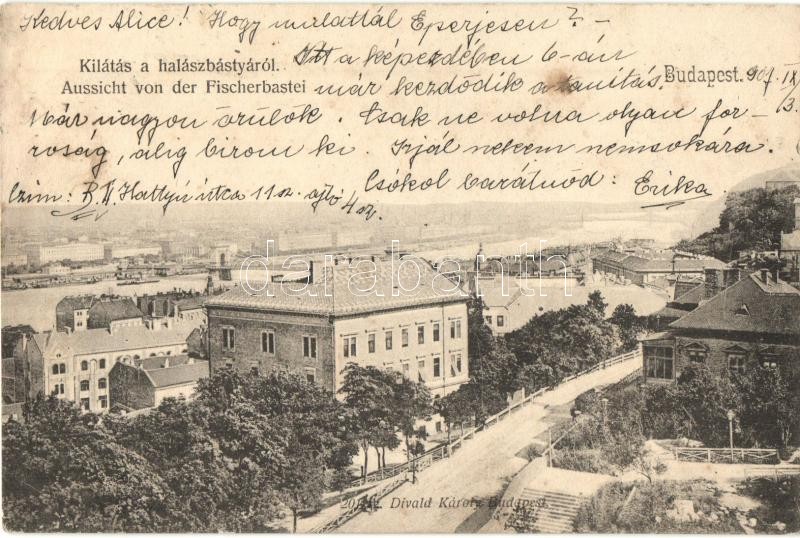 Kedves Alice! Hogy mulattál Eperjesen? –
Kilátás a halászbástyáról.
Aussicht von der Fischerbastei
Itt a képezdében 6-án
már kezdődik a tanítás.
Budapest. 907. IX/3.
Már nagyon örülök. Csak ne volna olyan for-
róság, alig birom ki. Írjál nekem nemsokára.
Czim: B. II. Hattyú utca 11 sz. ajtó 4 sz.
Csókol barátnőd: Erika
darabanth
Divald Károly, Budapest.